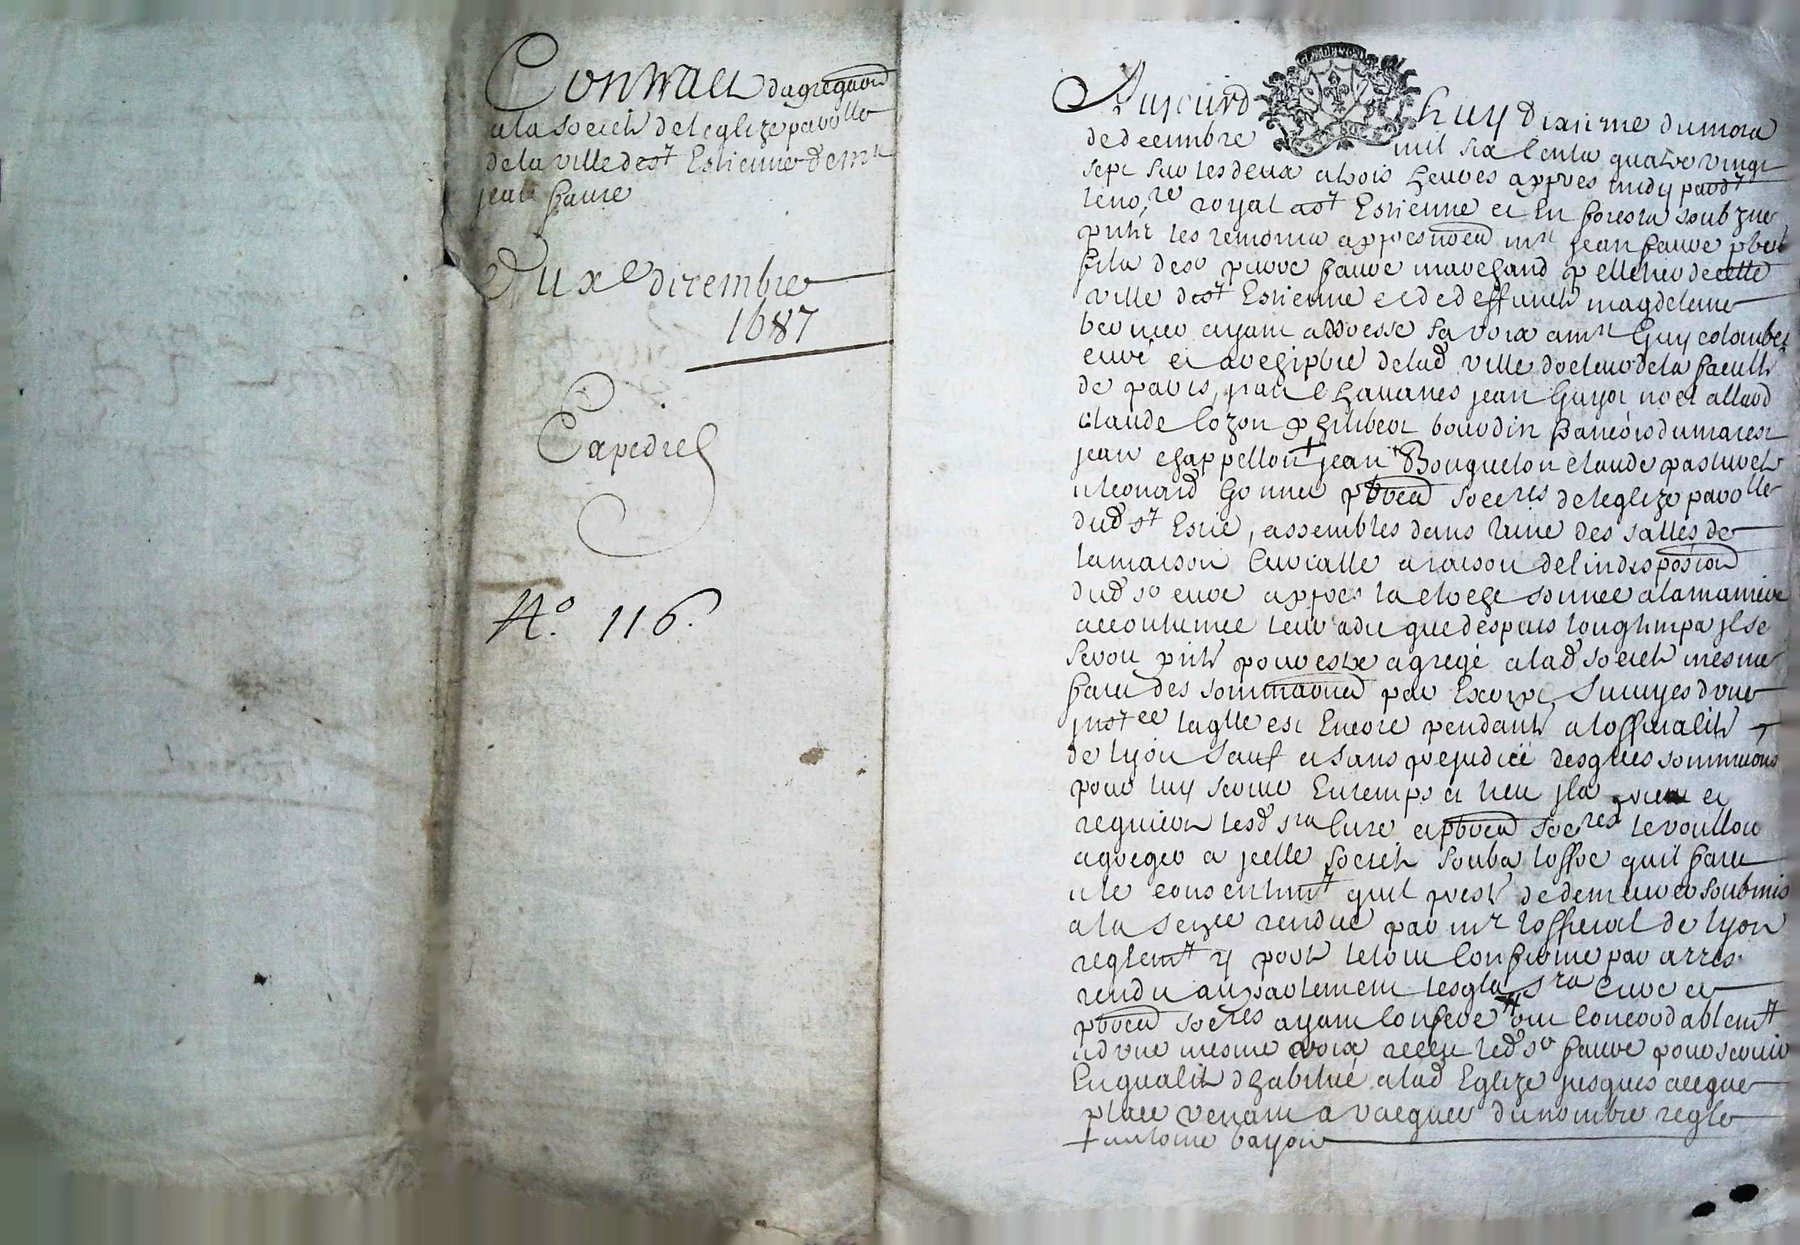 Contract dagregaon
a la societé de leglize parolle
de la ville de st Estienne de mre
jean faure
Du xe decembre
1687
Expedié
N.o 116.
Aujourdhuy dixieme du mois
de decembre mil six centz quatre vingt
sept sur les deux a trois heures appres midy pardt
le no.re royal a st Estienne et en forestz soubzne
pnt les temoins appres nom mre jean faure pbre
filz de sr pierre faure marchand pelletier de cette
ville de st Estienne et de deffuncte magdeleine
ayant adresse sa voix a mre Guy colombet
curé et archiprbre de lad ville docteur de la faculté
de paris, jean Guyot noel allard
claude lozon philibert bourdin francois dumarest
jean chappellon + jean Bouqueton claude pasturel
et leonard Gonner pbres socres de leglize parolle
dud st Estie, assembles dans lune des salles de
la maison curialle a raison de lindisposion
dud sr curé appres la cloche sonnee a la maniere
accoutumee leur a dit que despuis longtemps il se
seroit pnte pour estre agregé a lad societé mesme
faict des sommaons par exprez suivyes dune
instce laqlle est encore pendante a lofficialité
de lyon sauf et sans prejudice desqlles sommaons
pour luy servir en temps et lieu il a prié et
requier lesd srs curé et pbres socres le voulloir
agreger a icelle societé soubz loffre quil faict
et le consentemt quil preste de demeurer soubmis
a la sence rendue par mr lofficial de lyon
reglemt y porté le tout confirmé par arrest
rendu au parlement lesqlz srs curé et
pbres socres ayant conferé ont concordablemt
et dune mesme voix receu led sr faure pour servir
en qualité dhabitué a lad Eglize jusques a ce que
place venant a vacquer du nombre reglé
+ antoine bayon